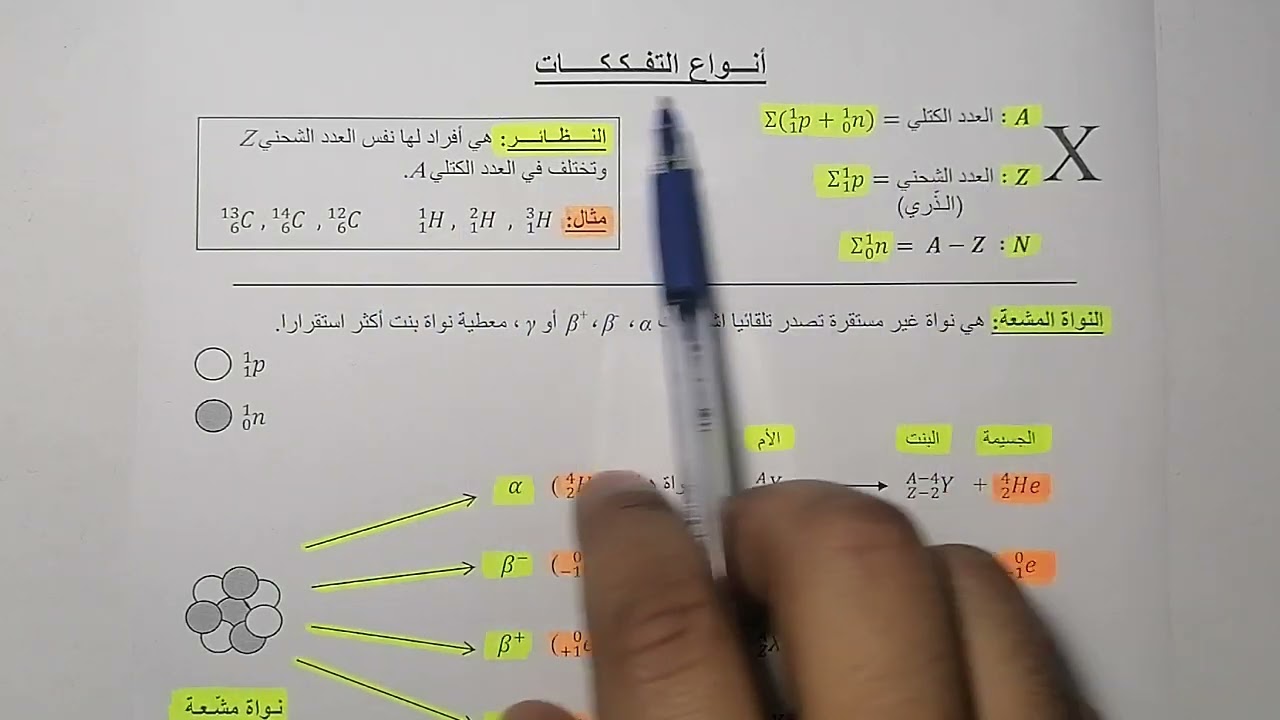 أنـــواع التفـككـــات
A : العدد الكتلي = Σ(¹₁p + ¹₀n)
X
Z : العدد الشحني = Σ¹₁p
(الذّري)
N : Σ¹₀n = A − Z
النـــظـــائـــر: هي أفراد لها نفس العدد الشحني Z
وتختلف في العدد الكتلي A.
مثال: ¹₁H , ²₁H , ³₁H ¹³₆C , ¹⁴₆C , ¹²₆C
النواة المشعة: هي نواة غير مستقرة تصدر تلقائيا α ، β⁻ ، β⁺ أو γ ، معطية نواة بنت أكثر استقرارا.
¹₁p
¹₀n
الأم البنت الجسيمة
α (⁴₂H ᴬ⁻⁴Z₋₂Y + ⁴₂He
β⁻ (⁰₋₁ ⁰₋₁e
β⁺ (⁰₊₁e
نواة مشّعة